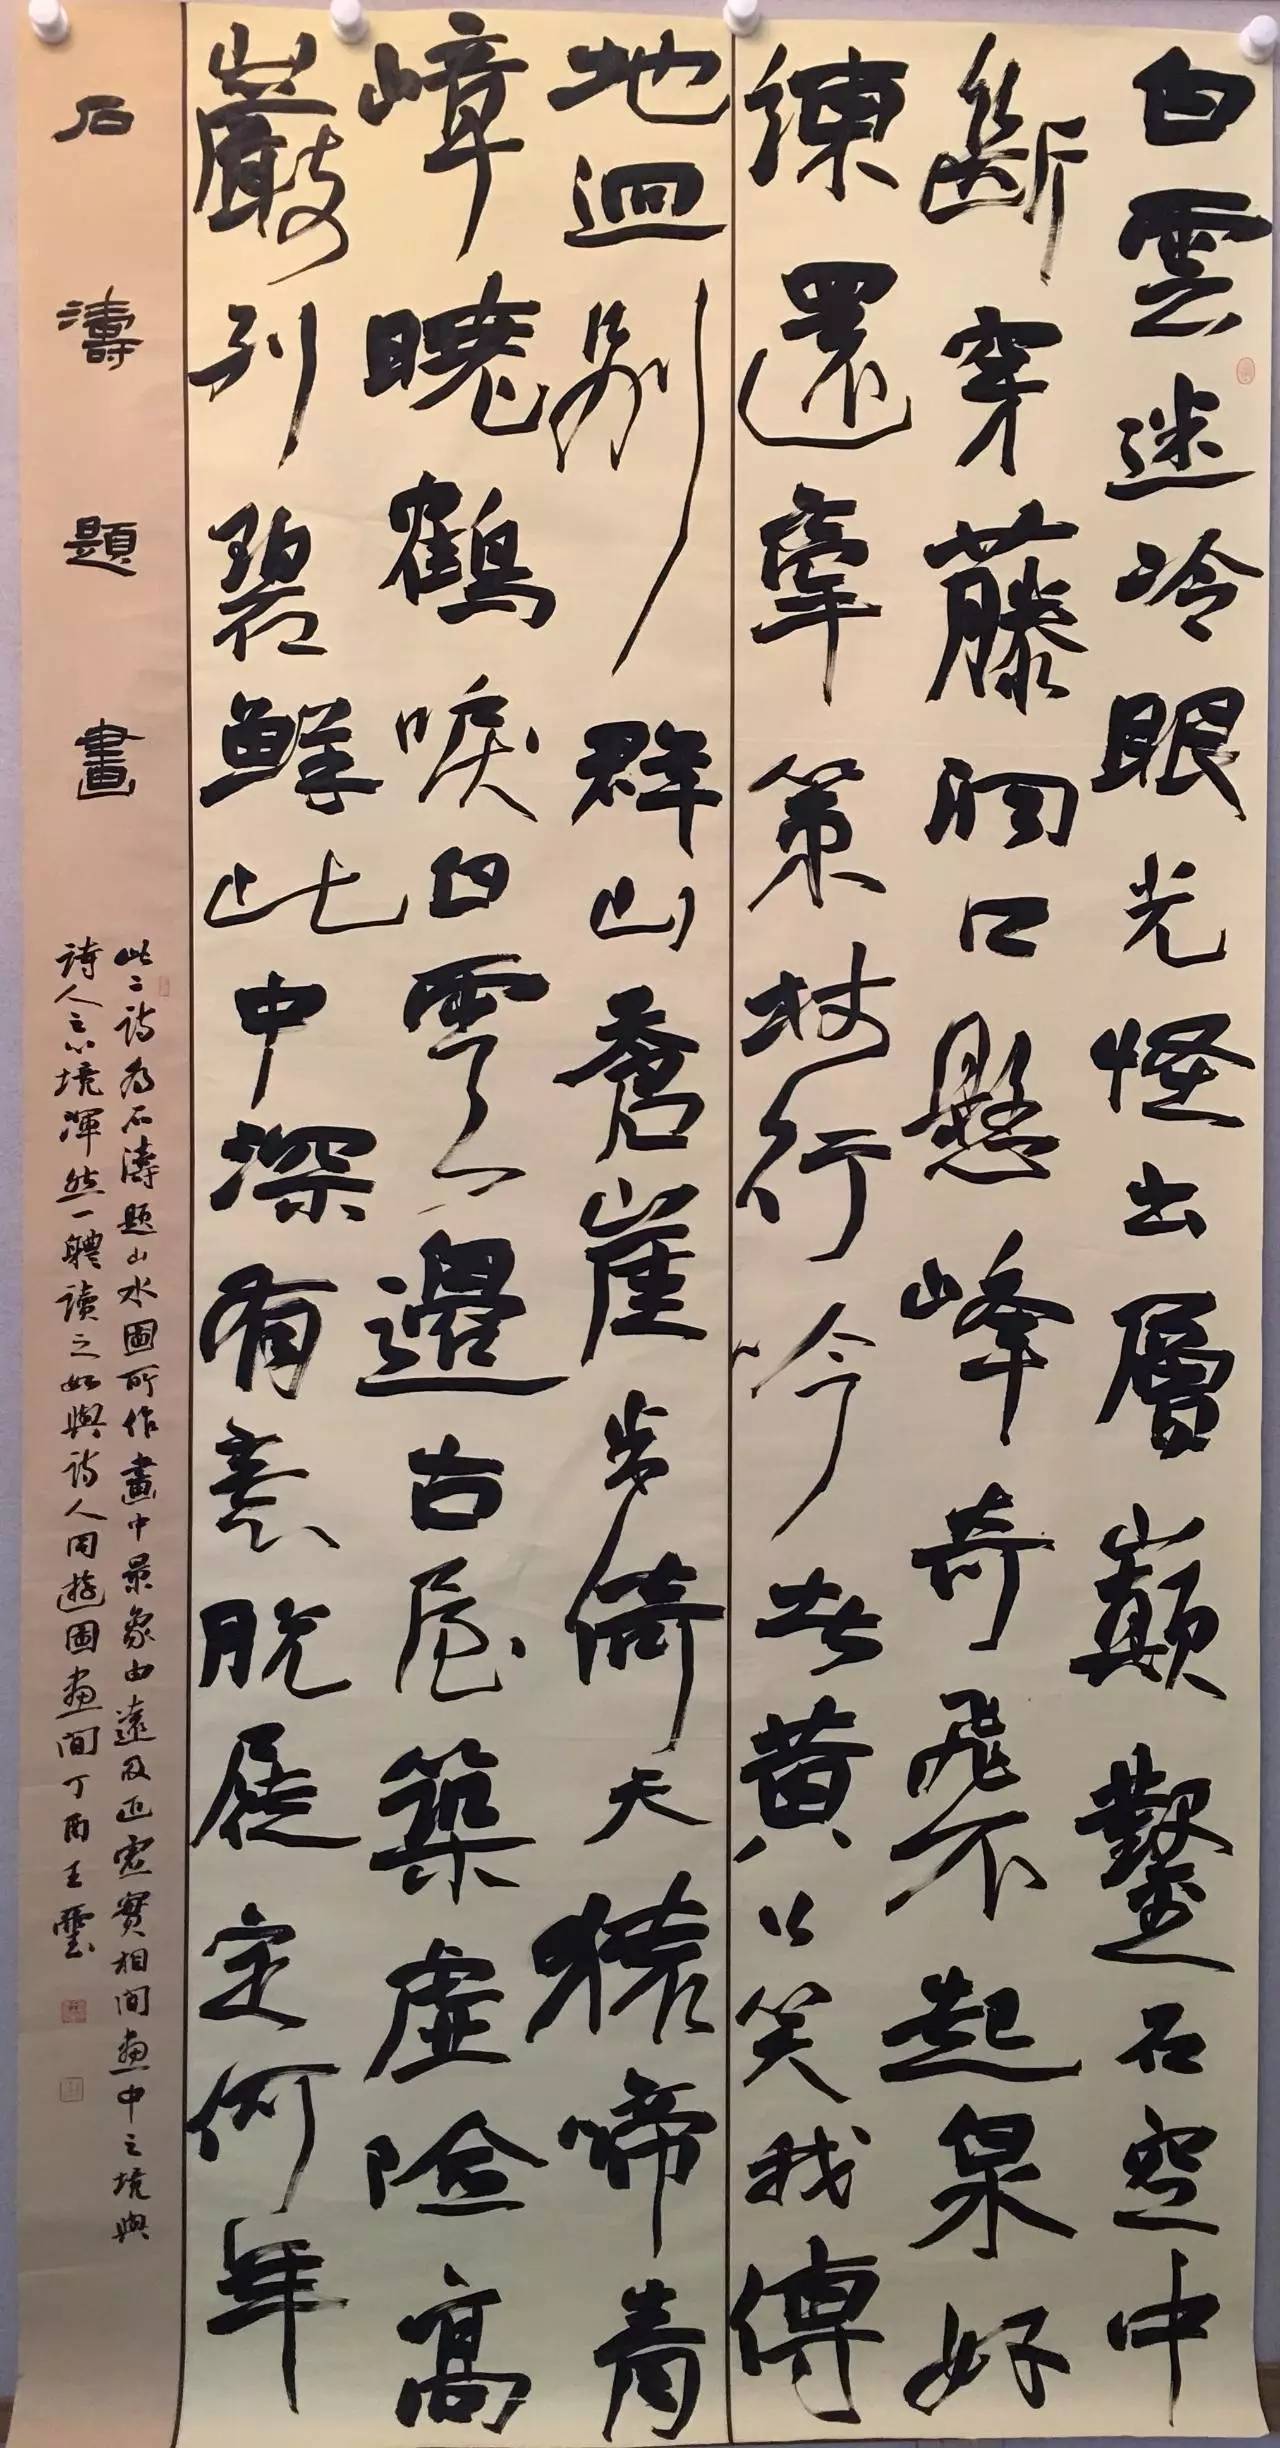 白雲迷冷眼光怪出層巔鑿石空中
斷穿藤洞口懸峰奇飛不起泉好
練還牽策杖行吟者黃公笑我傳
地迥別群山蒼崖步倚天猿啼青
嶂曉鶴唳白雲邊古屋築虛險高
巖列碧鮮此中深有意脫屣定何年
石濤題畫
此二詩為石濤題山水圖所作畫中景象由遠及近虛實相間畫中之境與
詩人之心境渾然一軆讀之如與詩人同遊圖畫間丁酉王